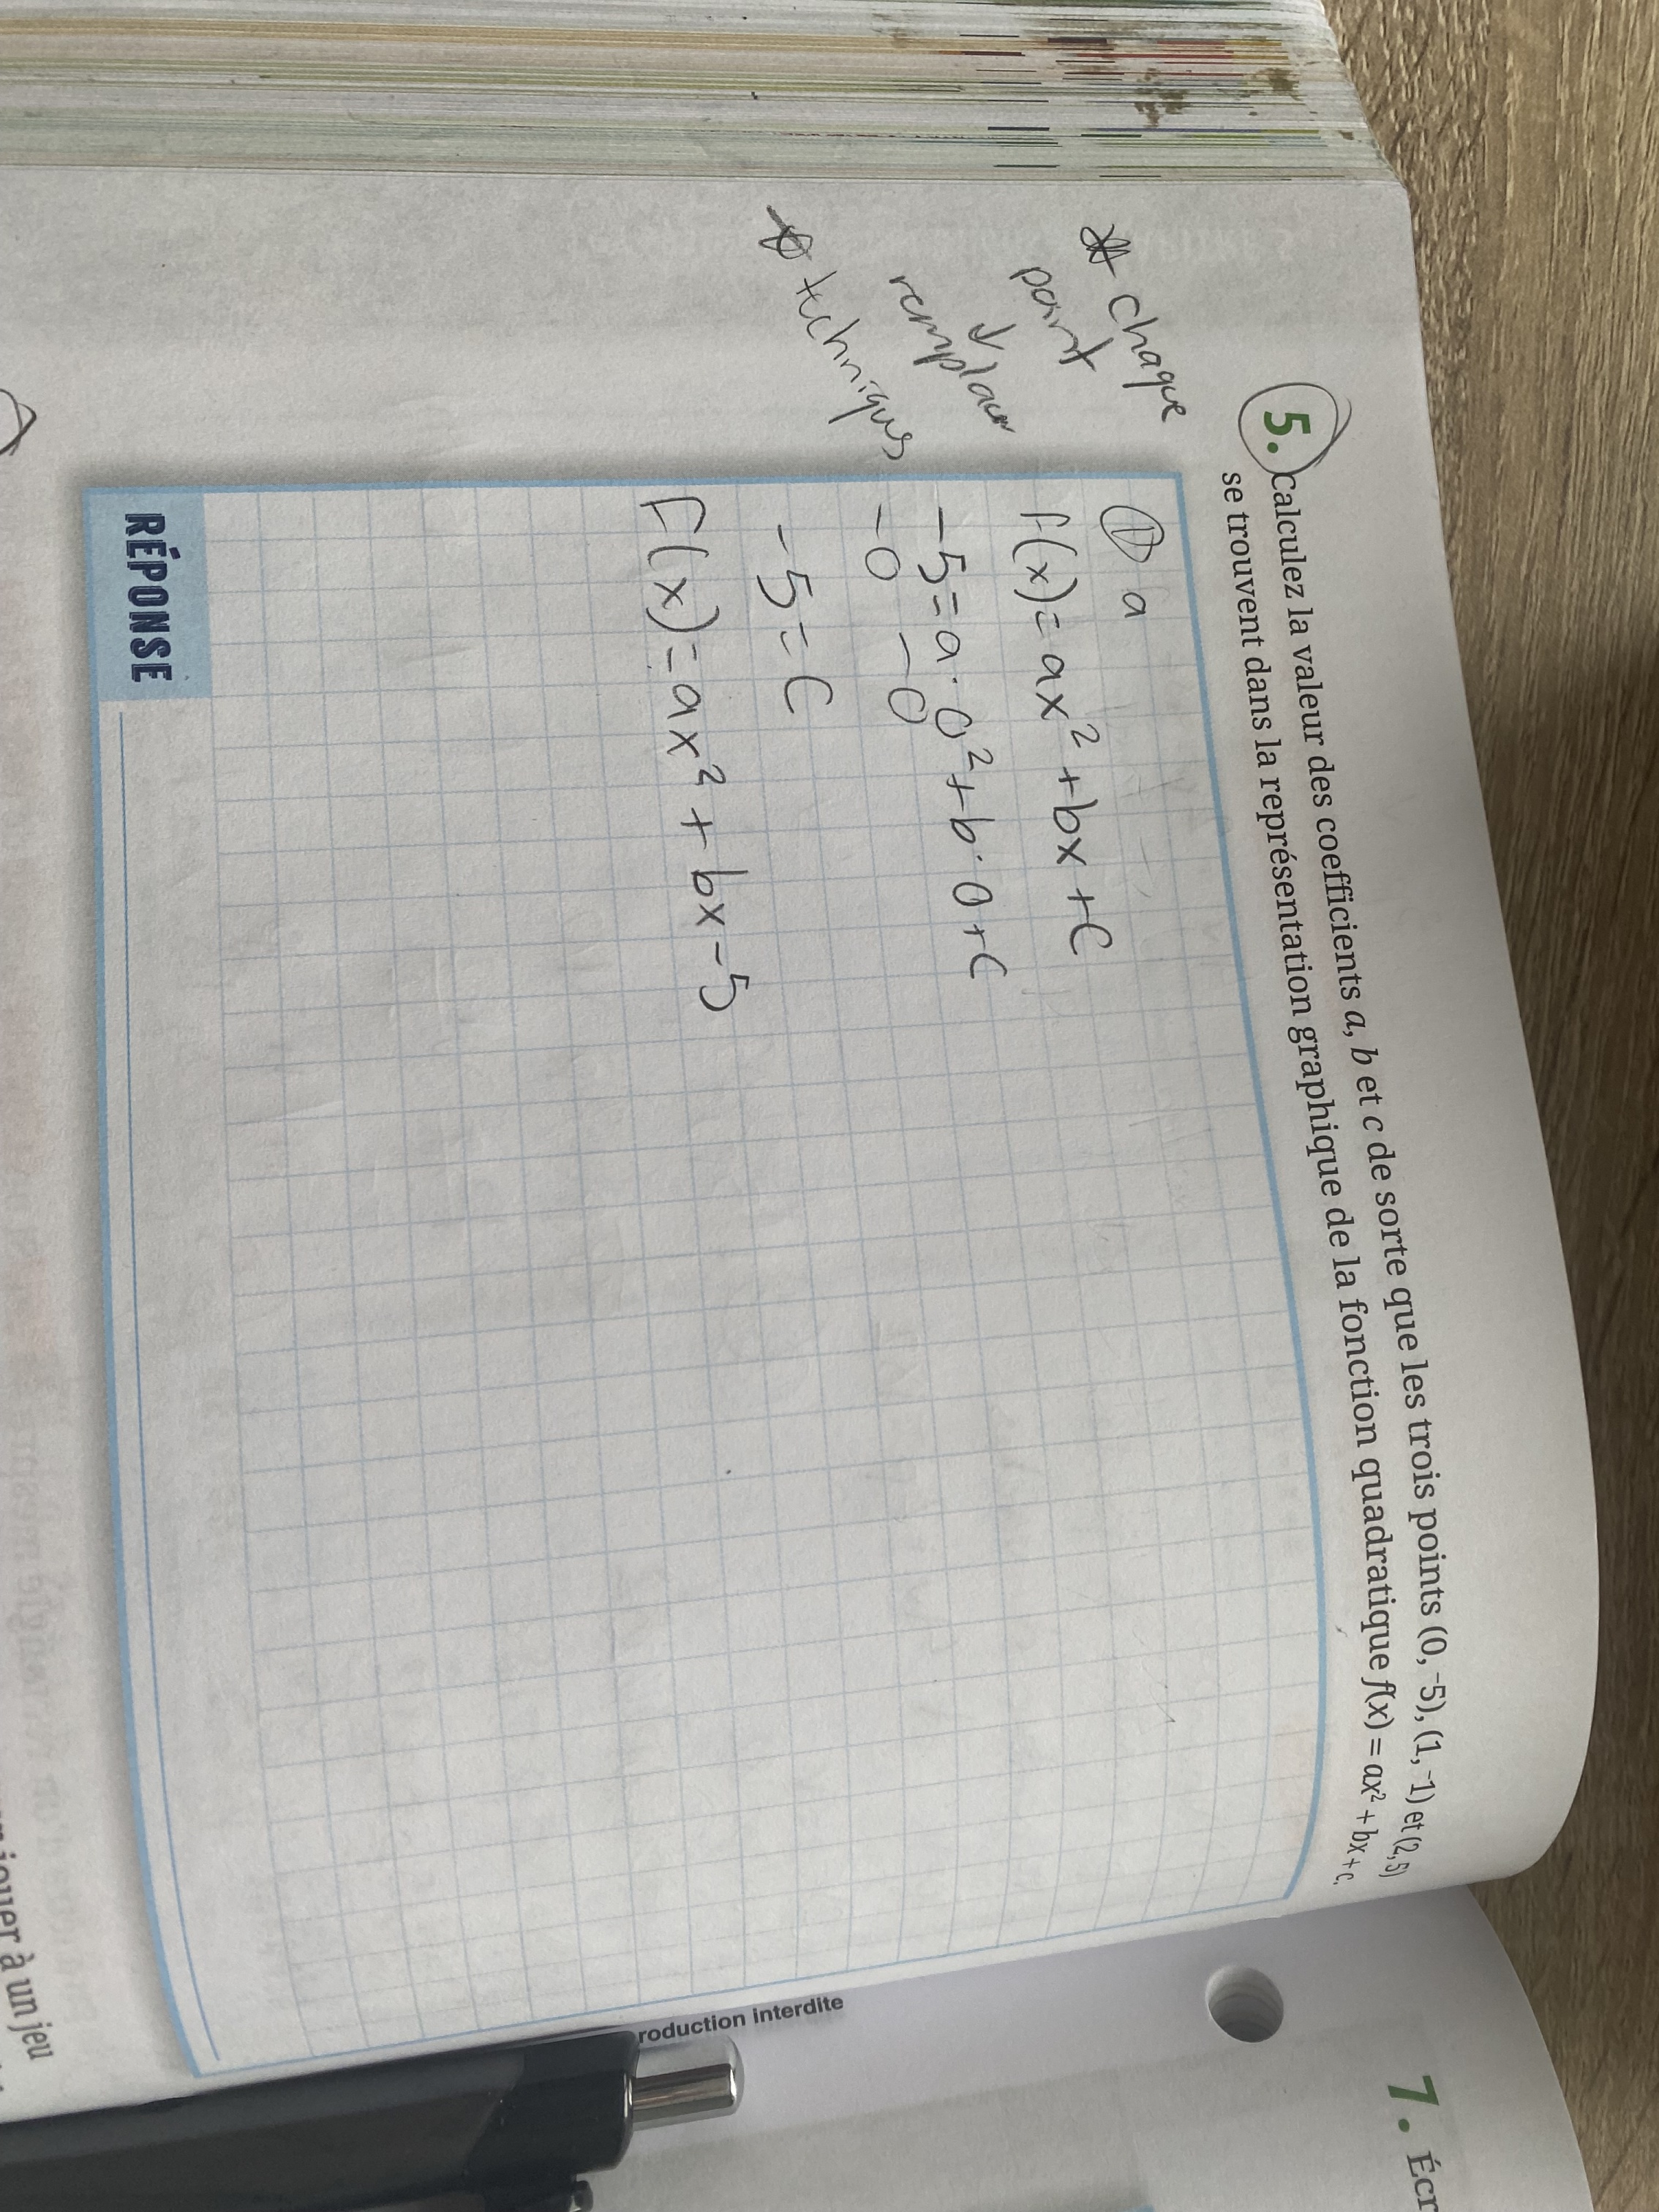 5. Calculez la valeur des coefficients a, b et c de sorte que les trois points (0, ⁻5), (1, ⁻1) et (2, 5)
se trouvent dans la représentation graphique de la fonction quadratique f(x) = ax² + bx + c.
* chaque
point
↓
remplacer
* techniques
① a
f(x) = ax² + bx + c
-5 = a · 0² + b · 0 + c
-0 -0
-5 = c
F(x) = ax² + bx - 5
RÉPONSE
roduction interdite
7. Écr
jouer à un jeu